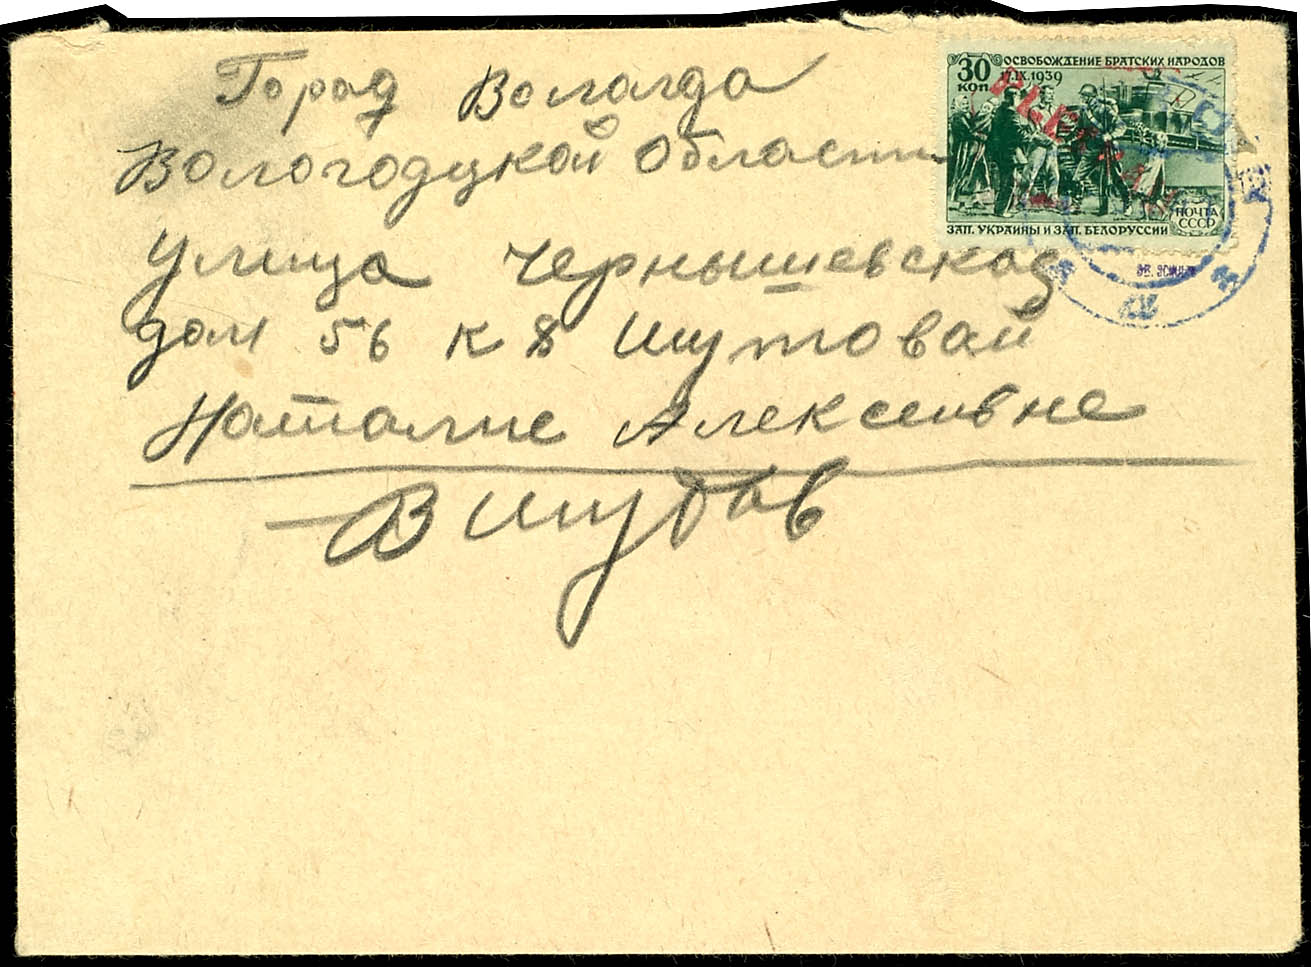 Город Вологда
Вологодцкой области
улица Чернышевская
дом 56 к 8 Шутовай
Наталие Алексеивне
В Шутов
30 коп
ОСВОБОЖДЕНИЕ БРАТСКИХ НАРОДОВ
17.IX.1939
ПОЧТА
СССР
ЗАП. УКРАИНЫ И ЗАП. БЕЛОРУССИИ